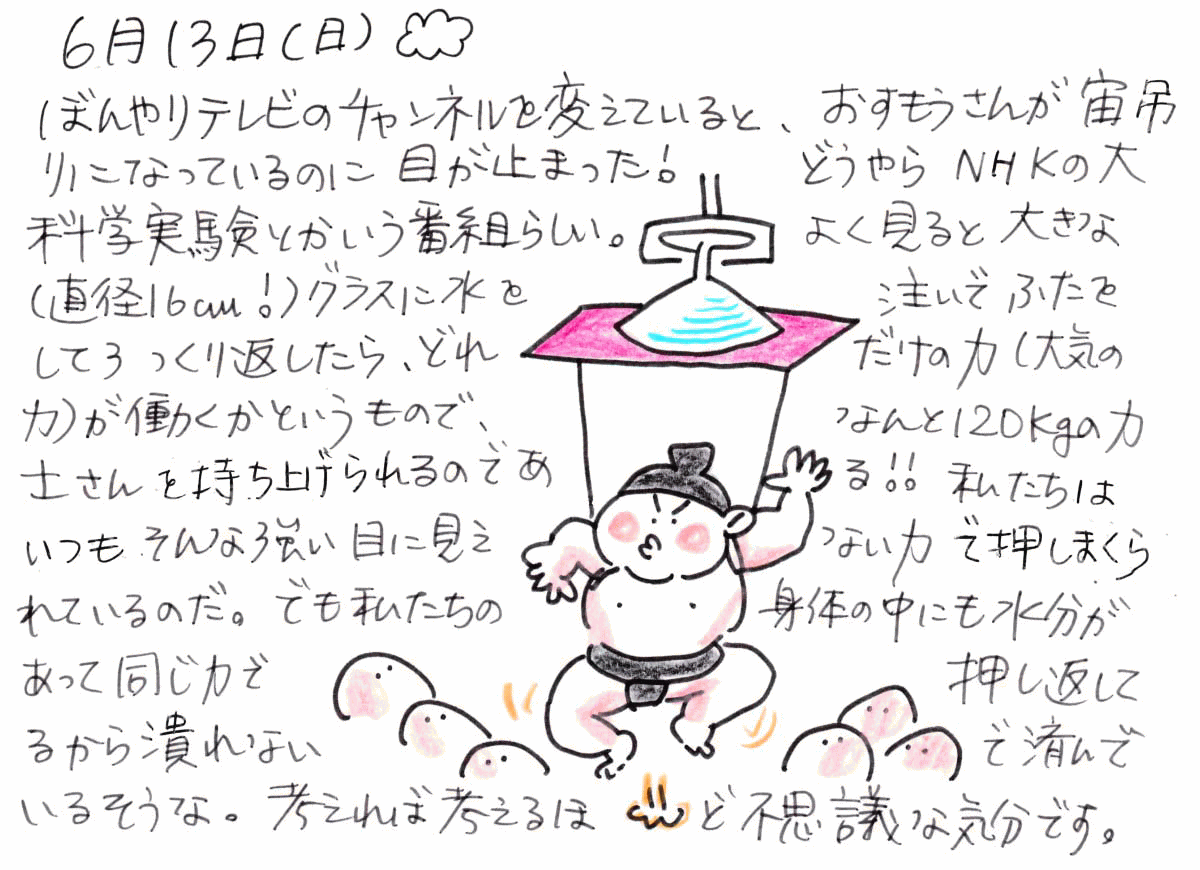 6月13日(日)
ぼんやりテレビのチャンネルを変えていると、おすもうさんが宙吊
りになっているのに目が止まった! どうやらNHKの大
科学実験とかいう番組らしい。 よく見ると大きな
(直径16cm!)グラスに水を注いでふたを
してひっくり返したら、どれだけの力(大気の
力)が働くかというもので、なんと120kgの力
士さんを持ち上げられるのである!! 私たちは
いつもそんな強い目に見えない力で押しまくら
れているのだ。でも私たちの身体の中にも水分が
あって同じ力で押し返して
るから潰れないで済んで
いるそうな。考えれば考えるほど不思議な気分です。